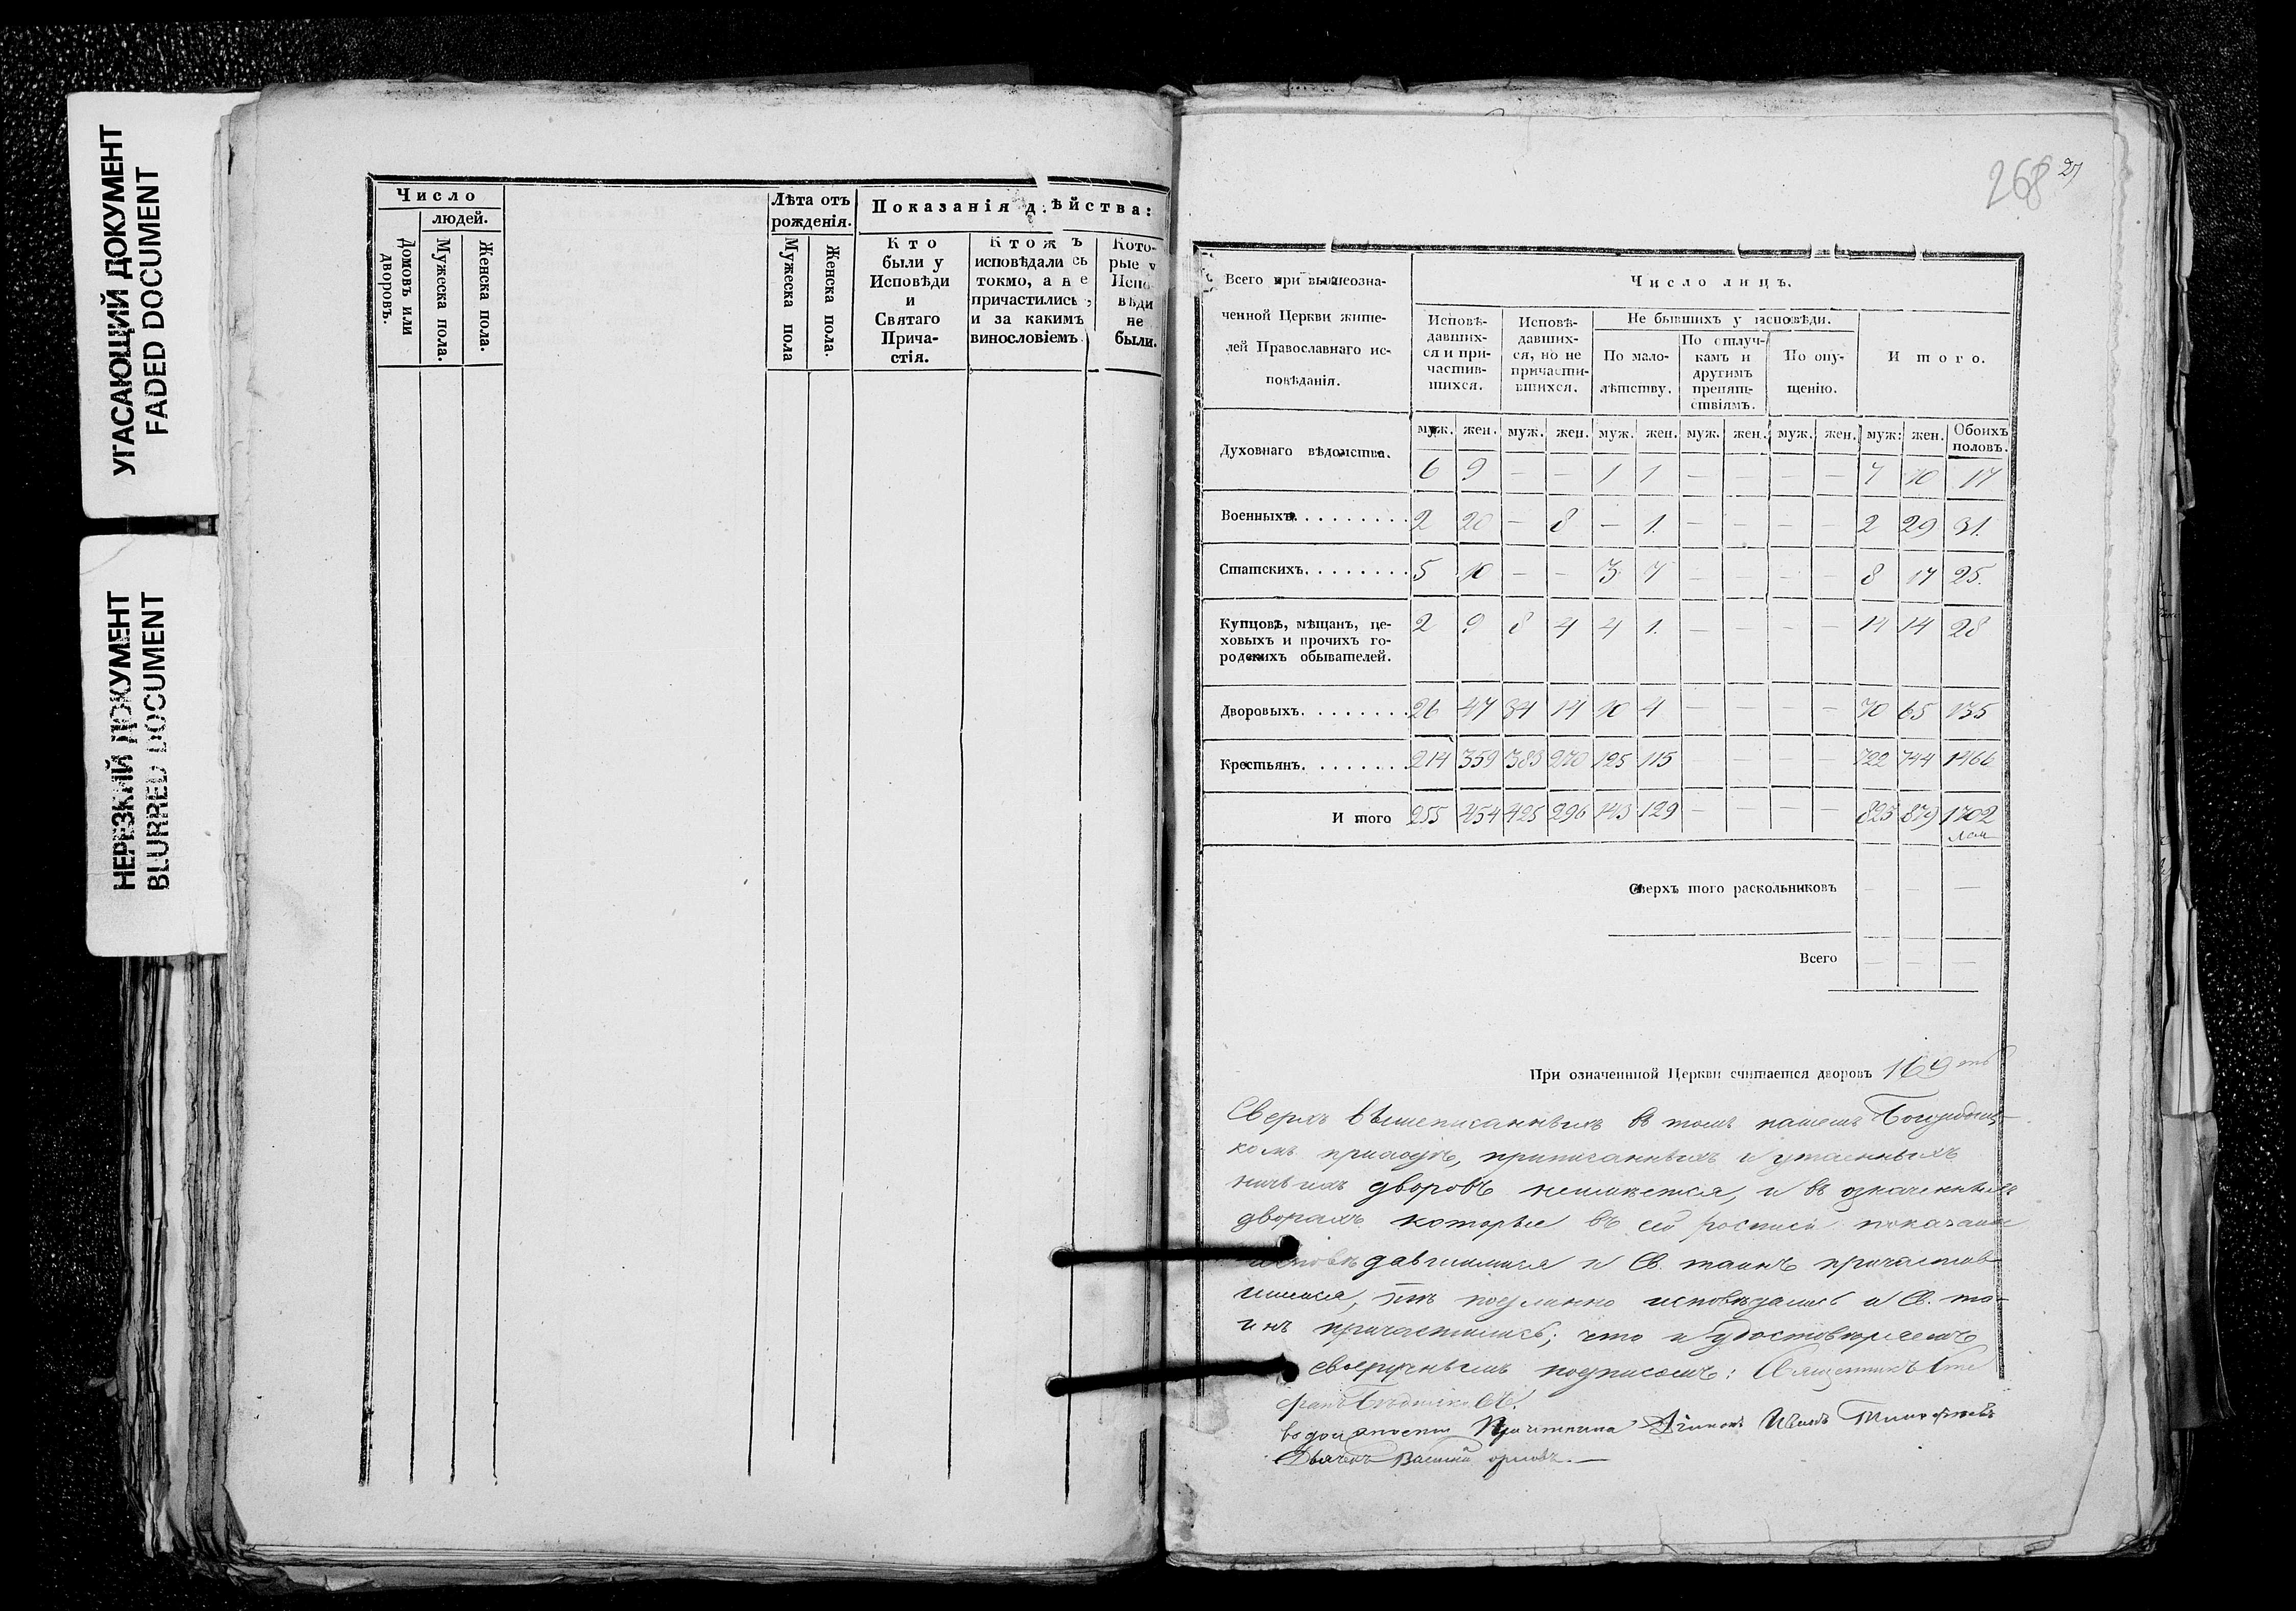 УГАСАЮЩИЙ ДОКУМЕНТ
FADED DOCUMENT
НЕРЕЗКИЙ ДОКУМЕНТ
BLURRED DOCUMENT
Число
людей.
Домовъ или дворовъ.
Мужеска пола.
Женска пола.
Лѣта отъ рожденія.
Мужеска пола
Женска пола.
Показанія дѣйства:
Кто были у Исповѣди и Святаго Причастія.
Ктожъ исповѣдались токмо, а не причастились, и за какимъ винословіемъ.
Которые у Исповѣди не были.
268
Всего при вышеозна-
ченной Церкви жите-
лей Православнаго ис-
повѣданія.
Число лицъ.
Исповѣ-
давших-
ся и при-
частив-
шихся.
Исповѣ-
давших-
ся, но не
причасти-
вшихся.
Не бывшихъ у исповѣди.
По мало-
лѣтству.
По отлуч-
камъ и
другимъ
препят-
ствіямъ.
По опу-
щенію.
Итого.
муж. жен. муж. жен. муж. жен. муж. жен. муж. жен. муж. жен. Обоихъ половъ.
Духовнаго вѣдомства. 6 9 — — 1 1 — — — — 7 10 17
Военныхъ. 2 20 — 8 — 1. — — — — 2 29 31.
Статскихъ. 5 10 — — 3 7 — — — — 8 17 25.
Купцовъ, мѣщанъ, це-
ховыхъ и прочихъ го-
родскихъ обывателей. 2 9 8 4 4 1. — — — — 14 14 28
Дворовыхъ. 26 47 34 14 10 4 — — — — 70 65 135
Крестьянъ. 214 359 383 270 125 115 — — — — 722 744 1466
И того 255 454 425 296 143 129 — — — — 823 879 1702
Сверхъ того раскольниковъ — — —
Всего — — —
При означенной Церкви считается дворовъ 169
Сверхъ вышеписанныхъ въ томъ нашемъ
комъ приходѣ, приписанныхъ и утаенныхъ
ничьихъ дворовъ неимѣется, и въ означенныхъ
дворахъ которые въ сей росписи показаны
исповѣдавшимися и Св. таинъ причастив
шимися, тѣ подлинно исповѣдались и Св. та-
инъ причастились; что и удостовѣряемъ
своеручнымъ подписомъ: Священникъ Сте
фанъ
въ должности Причетника Діаконъ Иванъ
Дьячекъ Василій орловъ. —